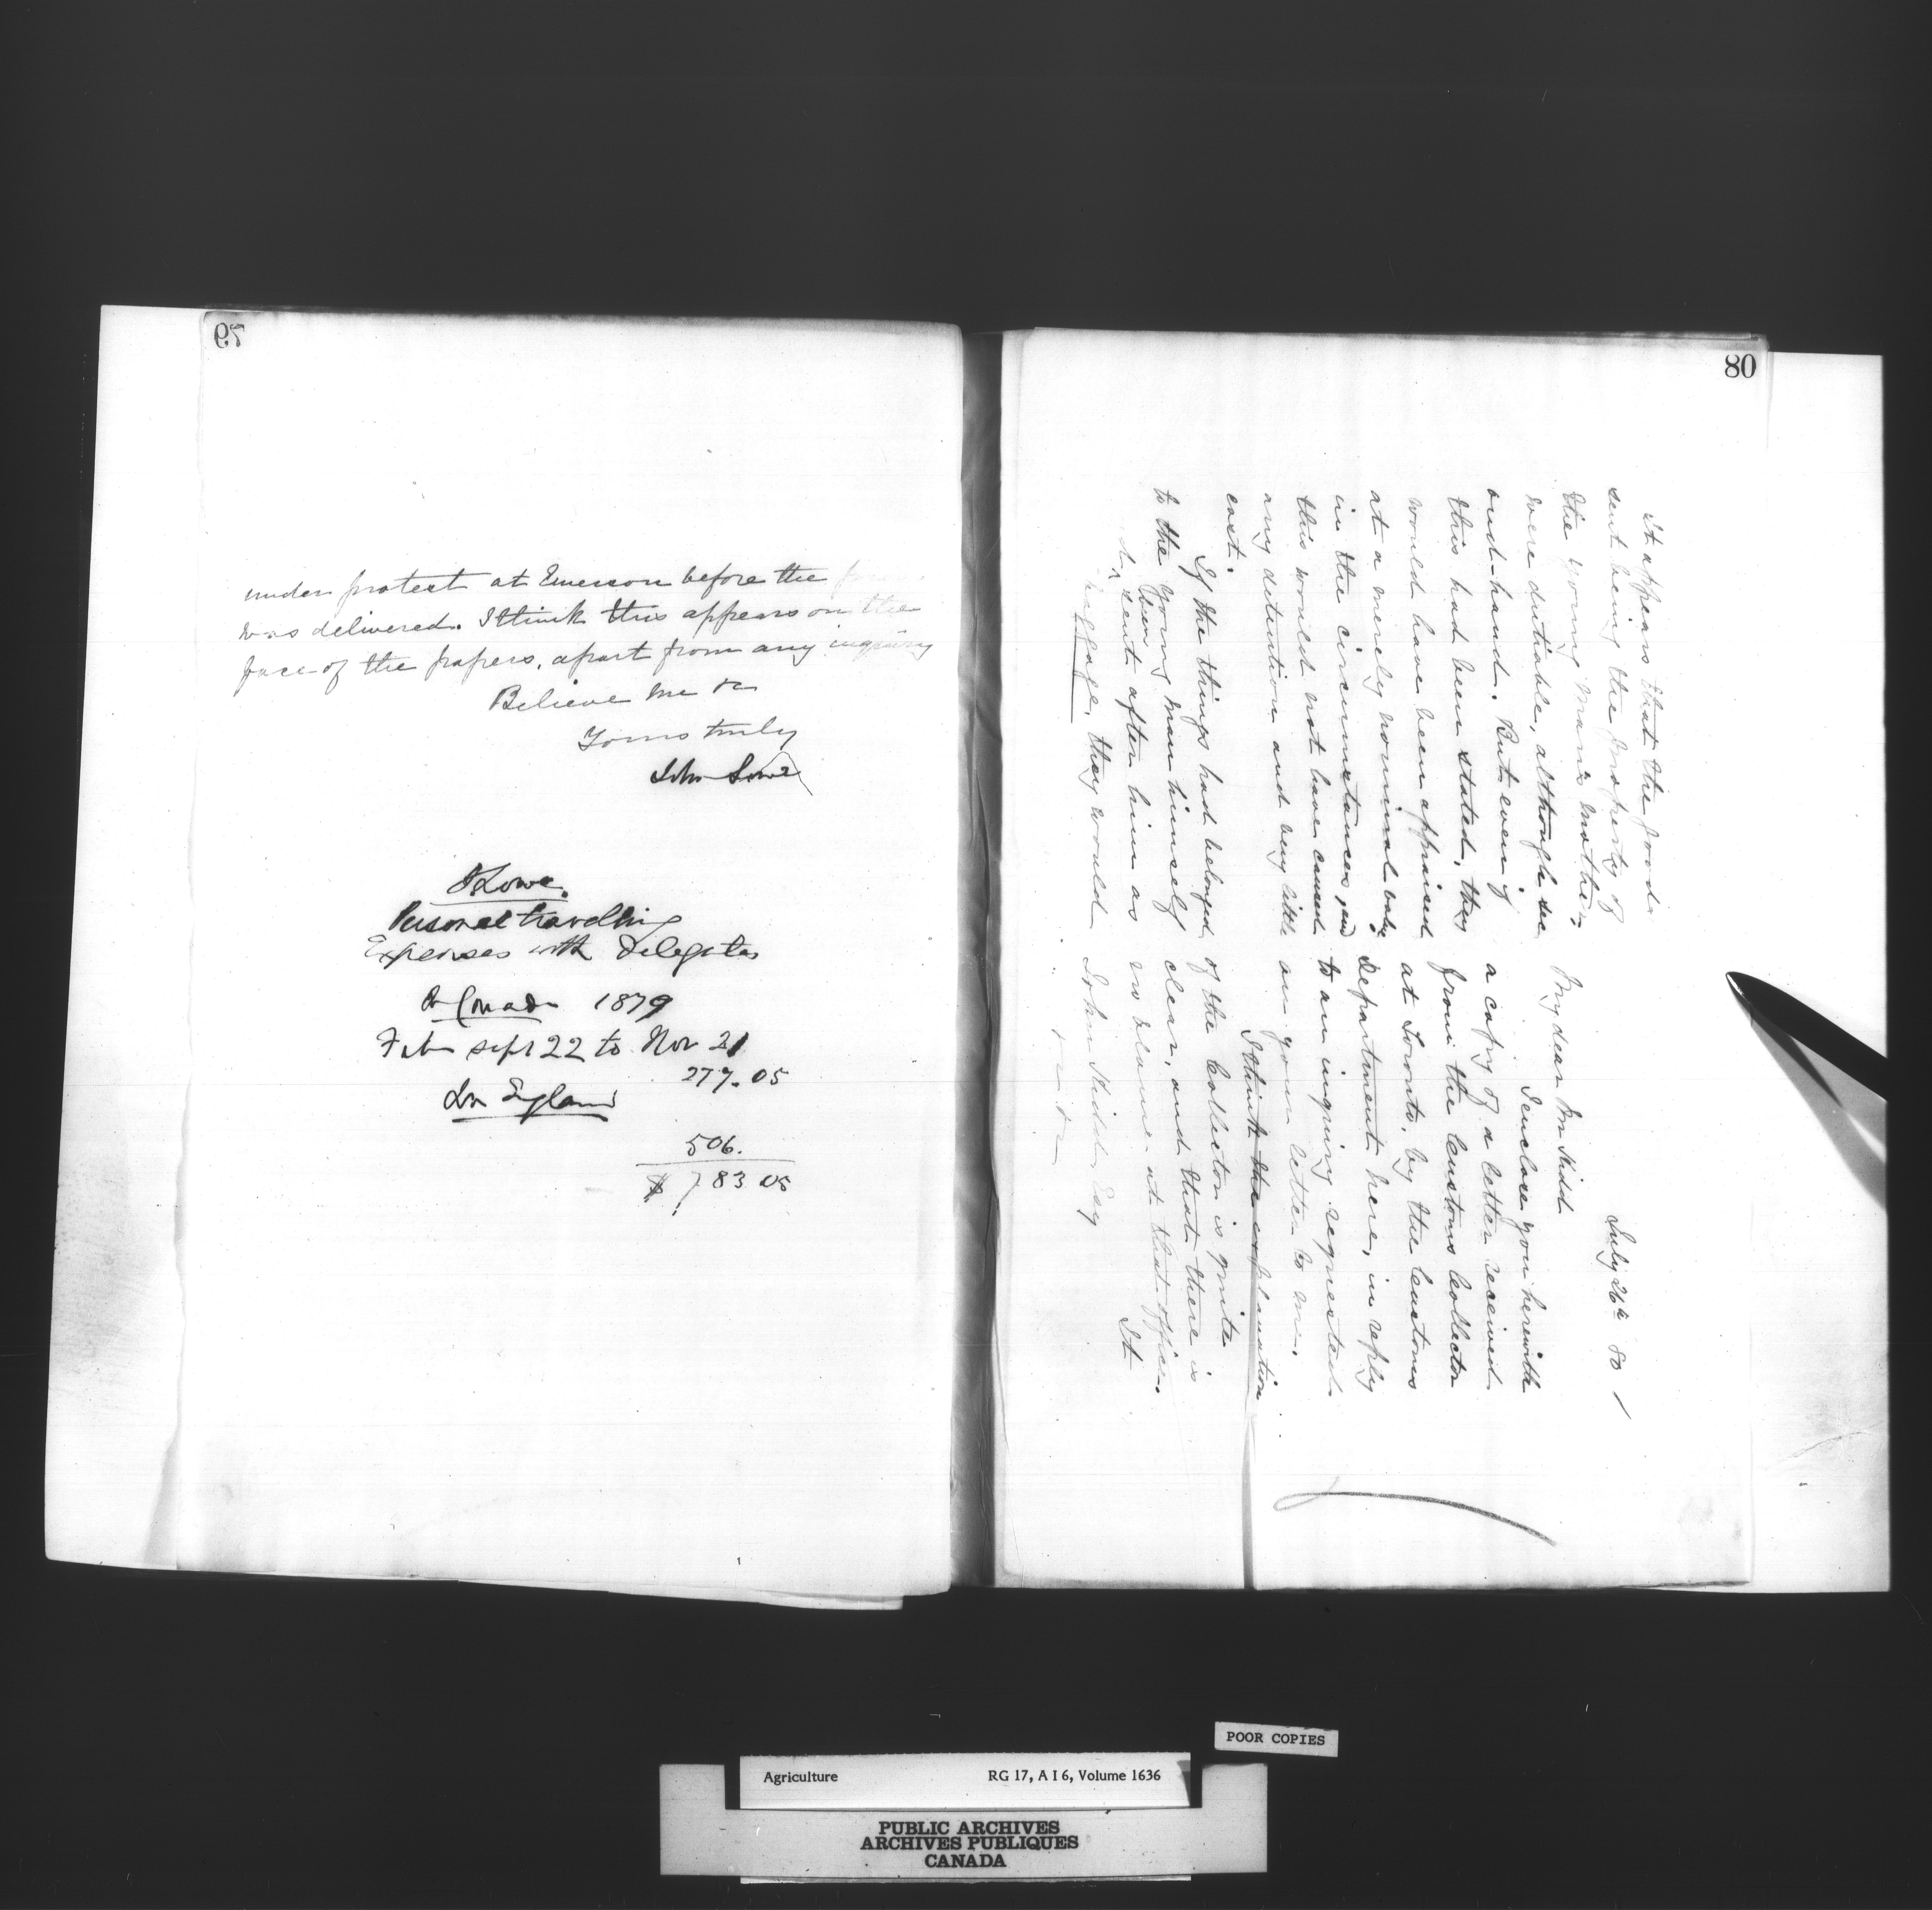 79
under protest at Emerson before the
was delivered. I think this appears on the
face of the papers, apart from any inquiry
Believe me &c
Yours truly
John Lowe
J Lowe.
Personal travelling
Expenses with Delegates
In Canada 1879
sept 22 to Nov 21
277.05
In England
506.
$ 783 05
80
July 26th 80
My dear Mr Kidd
I enclose you herewith
a copy of a letter received
from the Customs Collector
at Toronto, by the Customs
Department here, in reply
to an inquiry requested
on your letter to me.
I think the explanation
of the Collector is quite
clear, and that there is
no blame at that office.
It
John Kidd Esq
it appears that the goods
sent being the property of
the young man's mother
were dutiable, although second-hand. But even if
this had been stated, they
would have been appraised
at a merely nominal value
in the circumstances, and
this would not have caused
any detention and very little
cost.
If the things had belonged
to the young man himself
been sent after him as
baggage, they would
POOR COPIES
Agriculture RG 17, A I 6, Volume 1636
PUBLIC ARCHIVES
ARCHIVES PUBLIQUES
CANADA